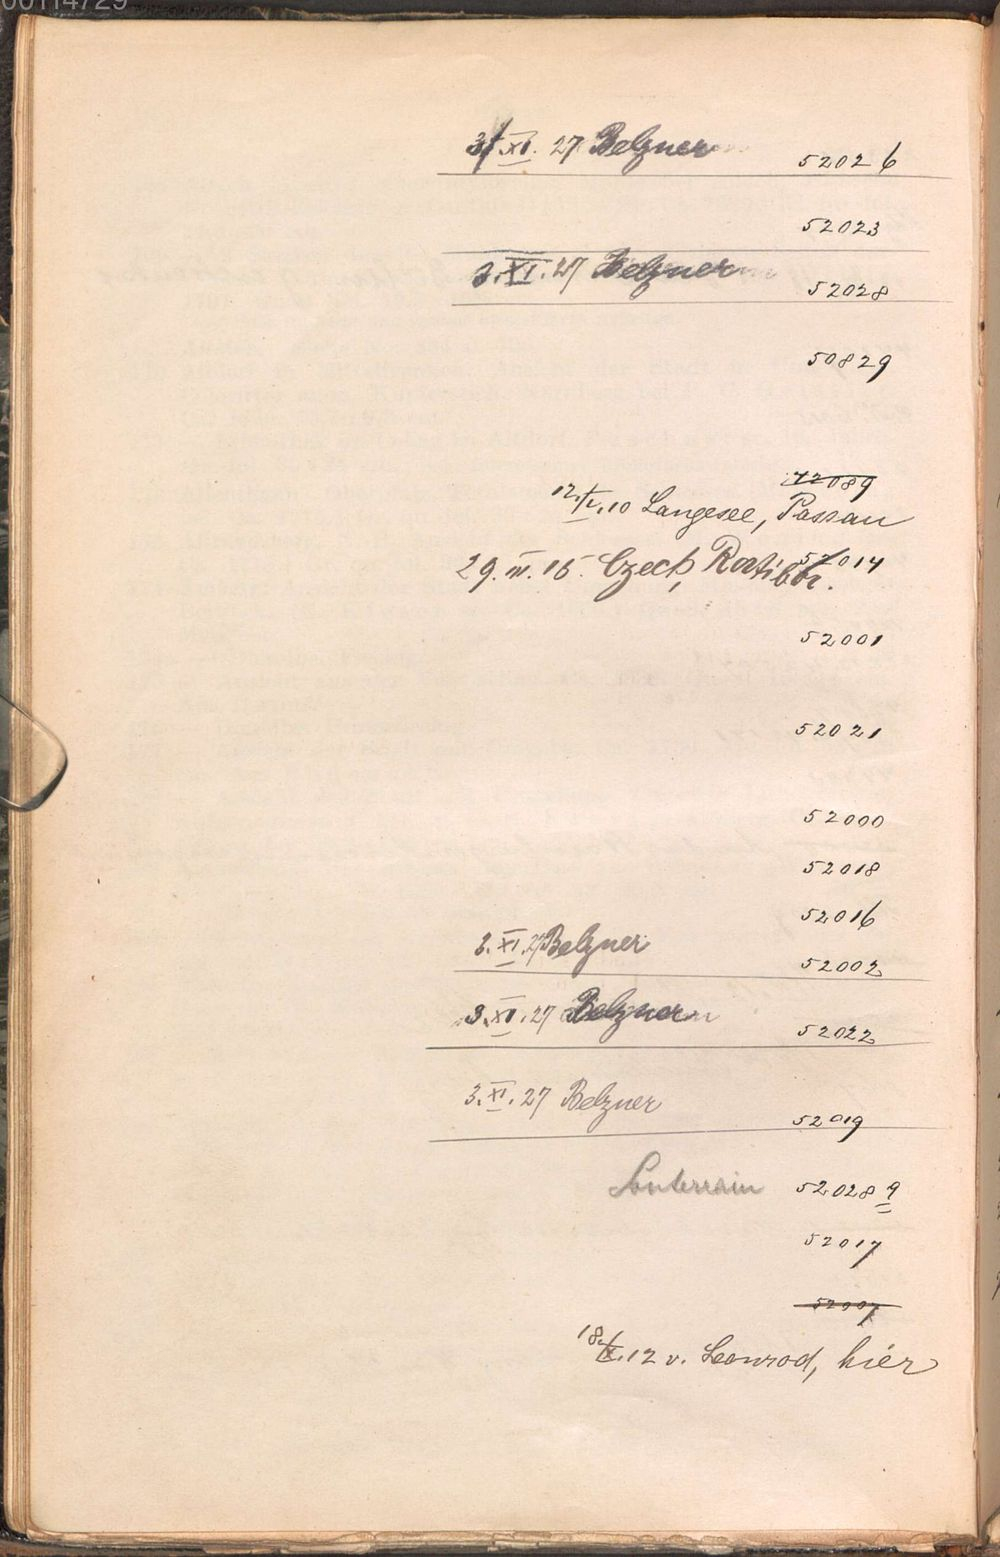 00114729
3. XI. 27 Belzner 52026
52023
3. XI. 27 Belzner 52028
50829
42089
12./V.10 Langesee, Passau
29. III. 15. Czech, Ratibor. 52014
52001
52021
52000
52018
52016
3. XI. 27 Belzner
52002
3. XI. 27 Belzner
52022
3. XI. 27 Belzner
52019
Souterrain 52028 a
52017
52007
18./X.12 v. Leonrod, hier